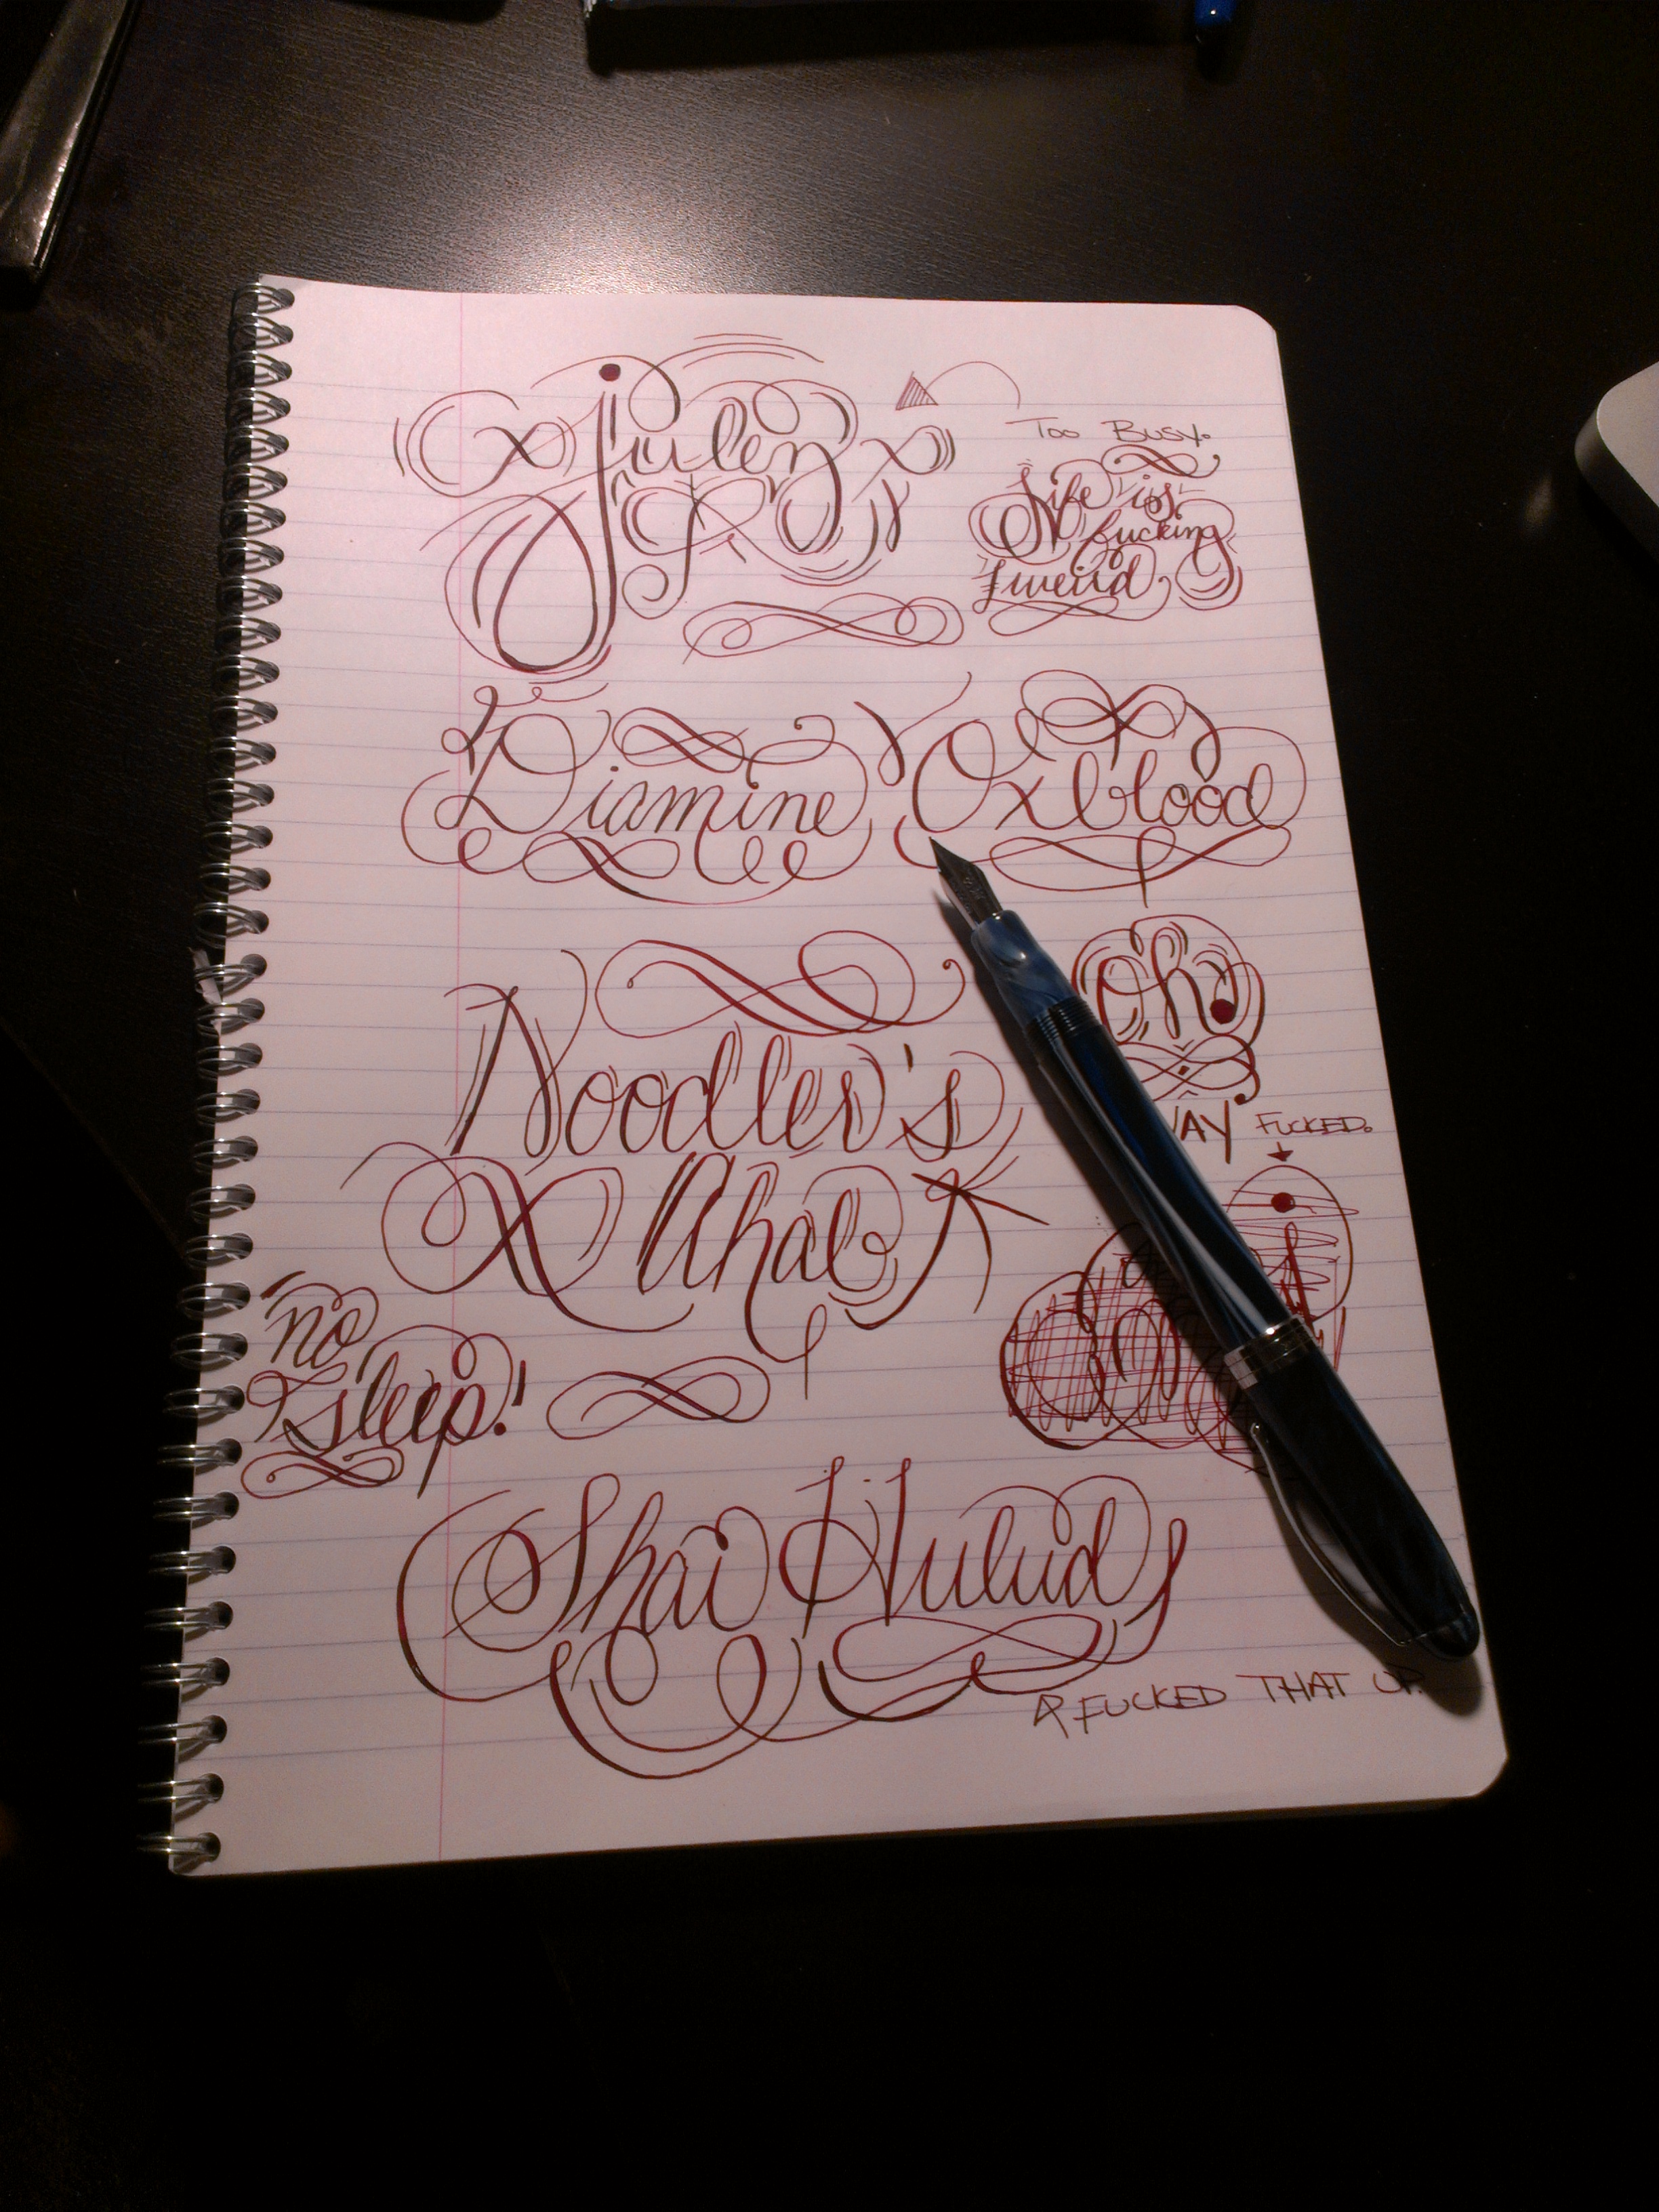 julen
Too Busy.
Life is
fucking
weird
Diamine Oxblood
oh,
Noodler's
Ahab
WAY FUCKED.
no
sleep!
Shai Hulud
FUCKED THAT UP.